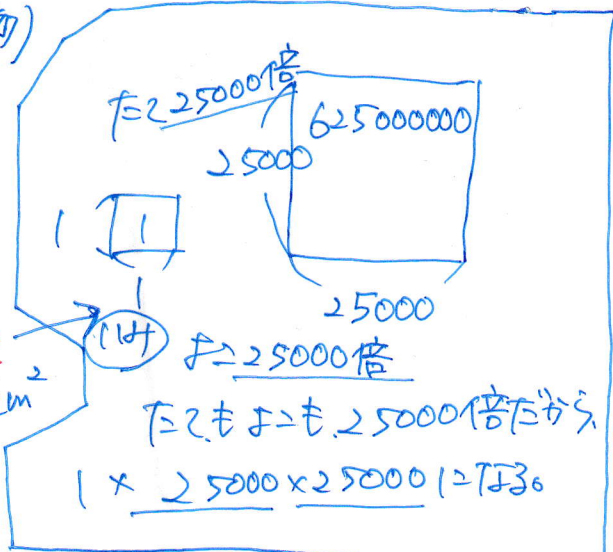 たて25000倍
625000000
25000
1
1
1
25000
よこ25000倍
m²
たてもよこも、25000倍だから、
1 × 25000×25000になる。